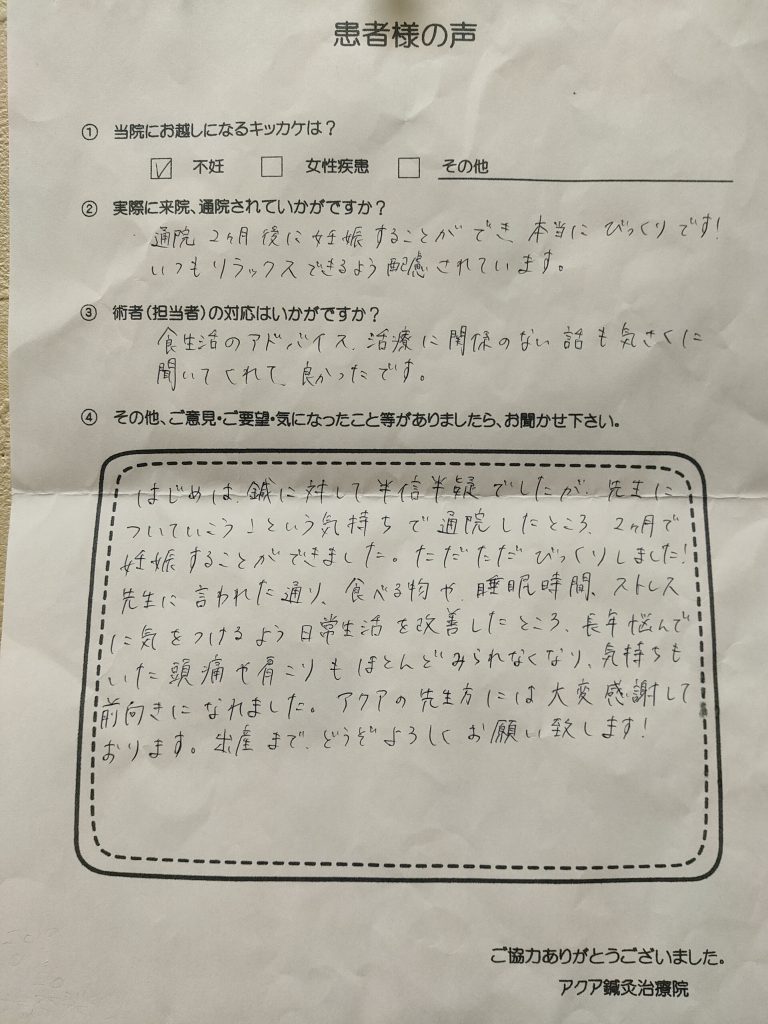 患者様の声
① 当院にお越しになるキッカケは？
☑ 不妊 □ 女性疾患 □ その他
② 実際に来院、通院されていかがですか？
通院 2ヶ月後に妊娠することができ、本当にびっくりです！
いつもリラックスできるよう配慮されています。
③ 術者（担当者）の対応はいかがですか？
食生活のアドバイス、治療に関係のない話も気さくに
聞いてくれて、良かったです。
④ その他、ご意見・ご要望・気になったこと等がありましたら、お聞かせ下さい。
はじめは、鍼に対して半信半疑でしたが、先生に
ついていこう」という気持ちで通院したところ、2ヶ月で
妊娠することができました。ただただびっくりしました！
先生に言われた通り、食べる物や、睡眠時間、ストレス
に気をつけるよう日常生活を改善したところ、長年悩んで
いた頭痛や肩こりもほとんどみられなくなり、気持ちも
前向きになれました。アクアの先生方には大変感謝して
おります。出産まで、どうぞよろしくお願い致します！
ご協力ありがとうございました。
アクア鍼灸治療院